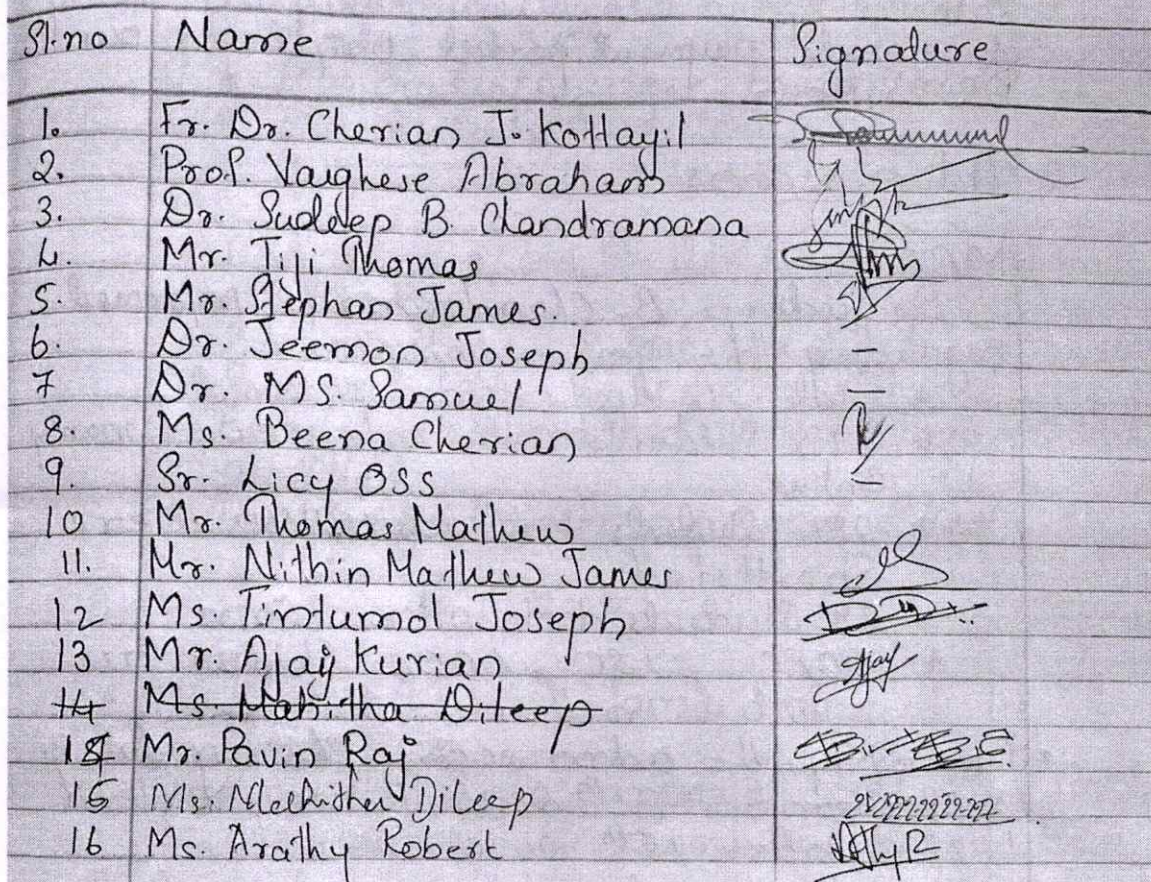 Sl.no Name Signature
1. Fr. Dr. Cherian J. Kottayil
2. Prof. Varghese Abraham
3. Dr. Sudeep B. Chandramana
4. Mr. Tiji Thomas
5. Mr. Stephan James.
6. Dr. Jeemon Joseph -
7 Dr. MS. Samuel -
8. Ms. Beena Cherian
9. Sr. Licy OSS -
10 Mr. Thomas Mathew
11. Mr. Nithin Mathew James
12 Ms. Tintumol Joseph
13 Mr. Ajay Kurian Ajay
14 Ms. Mahitha Dileep
14 Mr. Pavin Raj
15 Ms. Dileep
16 Ms. Arathy Robert